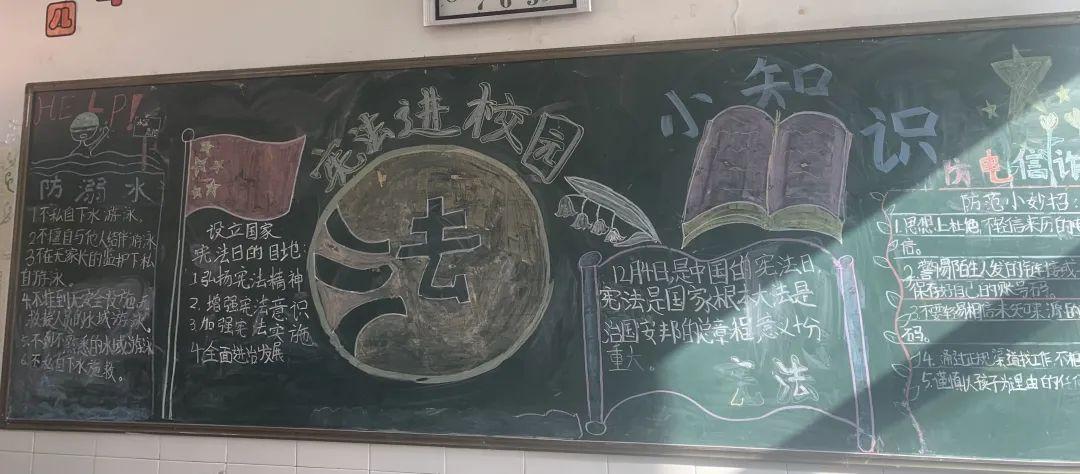 HELP!
防溺水
1.不私自下水游泳。
2.不擅自与他人结伴游泳
3.不在无家长的监护下私
自游泳。
4.不准到无安全设施、无
救援人员的水域游泳。
5.不到不熟悉的水域游泳
6.不私自下水施救。
设立国家
宪法日的目地:
1.弘扬宪法精神
2.增强宪法意识
3.加强宪法实施
4.全面进治发展
宪法进校园
法
小知识
12月4日是中国的宪法日
宪法是国家根本大法是
治国安邦的总章程意义十分
重大。
宪法
防电信诈
防范小妙招:
1.思想上杜绝,不轻信来历的
信。
2.警惕陌生人发的
保存好自己的账号
3.不要轻易相信未知来源的
码。
4.通过正规渠道找工作,不相
5.谨慎以孩子为理由的任